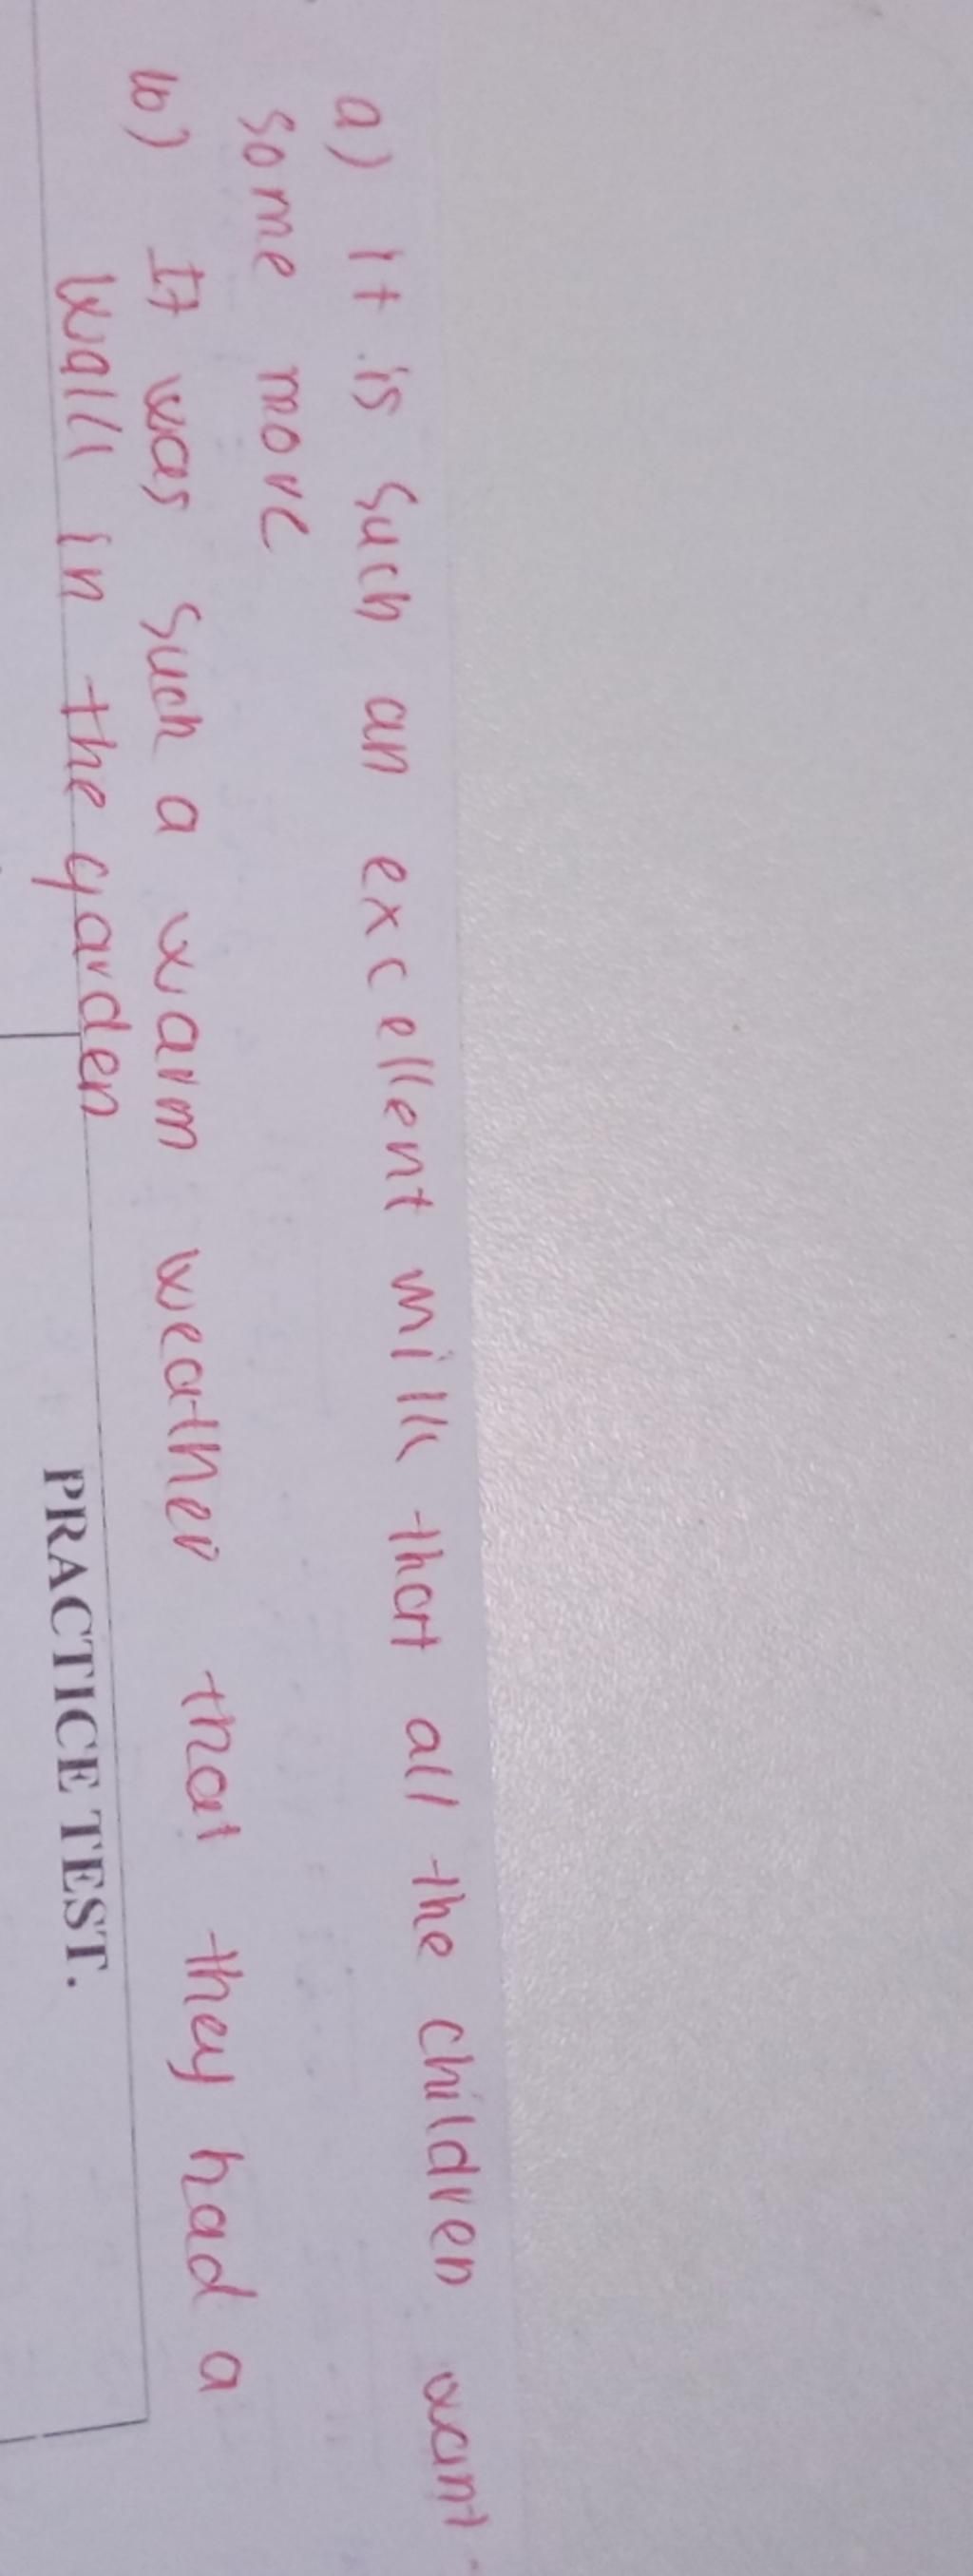 a) It is such an excellent milk that all the children want
some more
b) It was such a warm weather that they had a
walk in the garden
PRACTICE TEST.